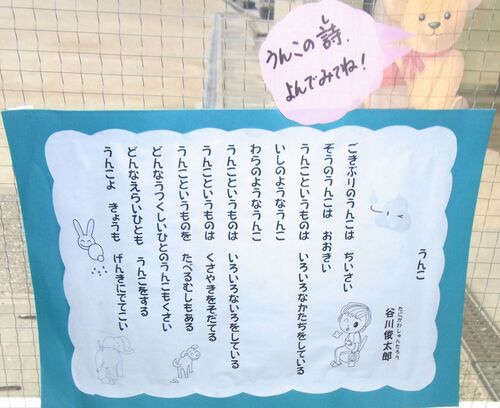 うんこの詩
し
よんでみてね!
うんこ
谷川俊太郎
たにがわしゅんたろう
ごきぶりのうんこは ちいさい
ぞうのうんこは おおきい
うんこというものは いろいろなかたちをしている
いしのようなうんこ
わらのようなうんこ
うんこというものは いろいろないろをしている
うんこというものは くさやきをそだてる
うんこというものを たべるむしもある
どんなうつくしいひとのうんこもくさい
どんなえらいひとも うんこをする
うんこよ きょうも げんきにでてこい